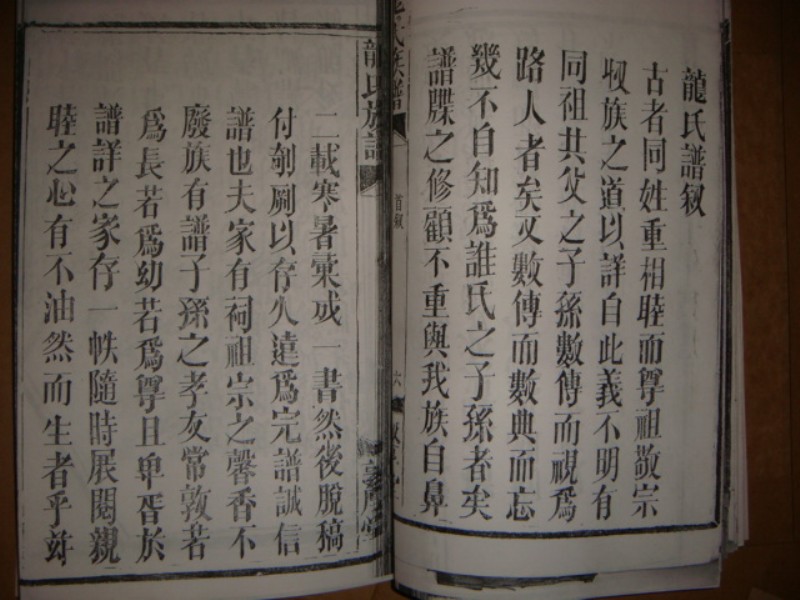 龍氏譜叙
古者同姓重相睦而尊祖敬宗
収族之道以詳自此義不明有
同祖共父之子孫數傳而視爲
路人者矣又數傳而數典而忘
幾不自知爲誰氏之子孫者矣
譜牒之修顧不重與我族自鼻
氏族譜
首叙
六
龍氏族譜
二載寒暑彙成一書然後脫稿
付剞劂以存久遠爲完譜誠信
譜也夫家有祠祖宗之馨香不
廢族有譜子孫之孝友常敦若
爲長若爲幼若爲尊且卑胥於
譜詳之家存一帙隨時展閱親
睦之心有不油然而生者乎竝